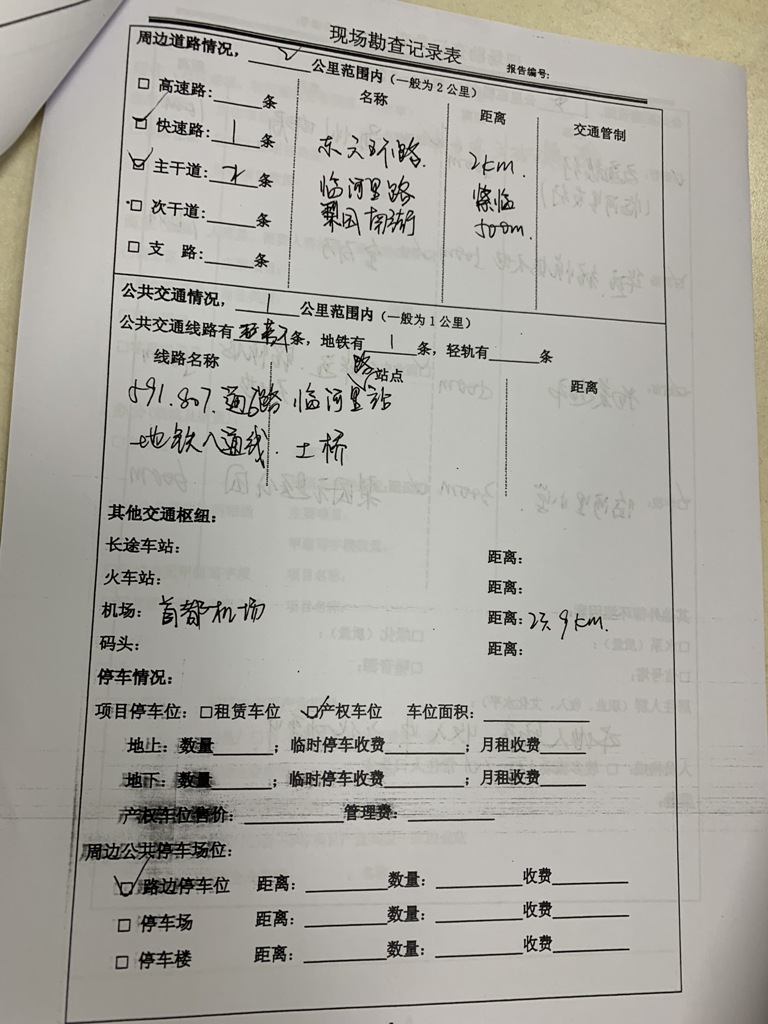 现场勘查记录表
报告编号:
周边道路情况，______公里范围内（一般为2公里）
名称 距离 交通管制
□ 高速路:______条
☑ 快速路: 1 条 东六环路 2km.
☑ 主干道:______条 临河里路 紧临
梨园南街 500m.
□ 次干道:______条
□ 支 路:______条
公共交通情况， 1 公里范围内（一般为1公里）
公共交通线路有 若干 条，地铁有 1 条，轻轨有______条
线路名称 站点 距离
591.807.通6路 临河里路站
地铁八通线. 土桥
其他交通枢纽：
长途车站： 距离：
火车站： 距离：
机场： 首都机场 距离：23.9km.
码头： 距离：
停车情况：
项目停车位：□租赁车位 ☑产权车位 车位面积：______
地上：数量______；临时停车收费______；月租收费______
地下：数量______；临时停车收费______；月租收费______
产权车位售价：______管理费：______
周边公共停车场位：
☑ 路边停车位 距离：______数量：______收费______
□ 停车场 距离：______数量：______收费______
□ 停车楼 距离：______数量：______收费______